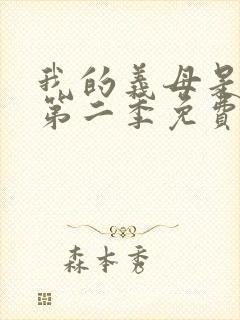 我的義母是
第二季免費
森本秀